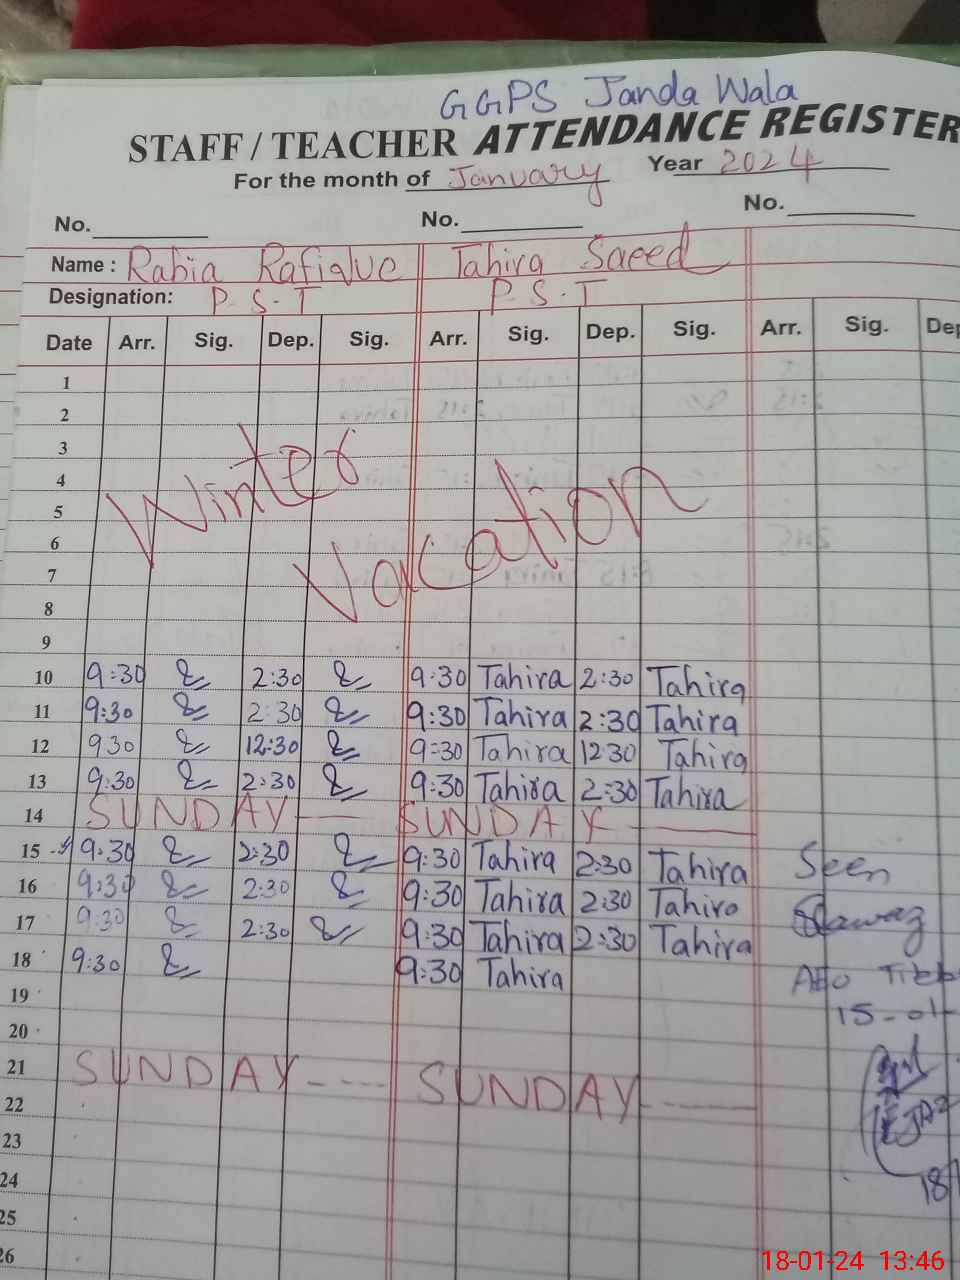 GGPS Janda Wala
STAFF / TEACHER ATTENDANCE REGISTER
For the month of January Year 2024
No. No. No.
Name : Rabia Rafique Tahira Saeed
Designation: P.S.T P.S.T
Date Arr. Sig. Dep. Sig. Arr. Sig. Dep. Sig. Arr. Sig. Dep
1
2
3
4
5
6
7
8
9
Winter
Vacation
10 9:30 2:30 9:30 Tahira 2:30 Tahira
11 9:30 2:30 9:30 Tahira 2:30 Tahira
12 930 12:30 9:30 Tahira 12:30 Tahira
13 9:30 2:30 9:30 Tahira 2:30 Tahira
14 SUNDAY SUNDAY
15 9:30 2:30 9:30 Tahira 2:30 Tahira Seen
16 9:30 2:30 9:30 Tahira 2:30 Tahira
17 9:30 2:30 9:30 Tahira 2:30 Tahira
18 9:30 9:30 Tahira AEO
19 15-01-
20
21 SUNDAY SUNDAY
22
23
24
25
26
18/
18-01-24 13:46